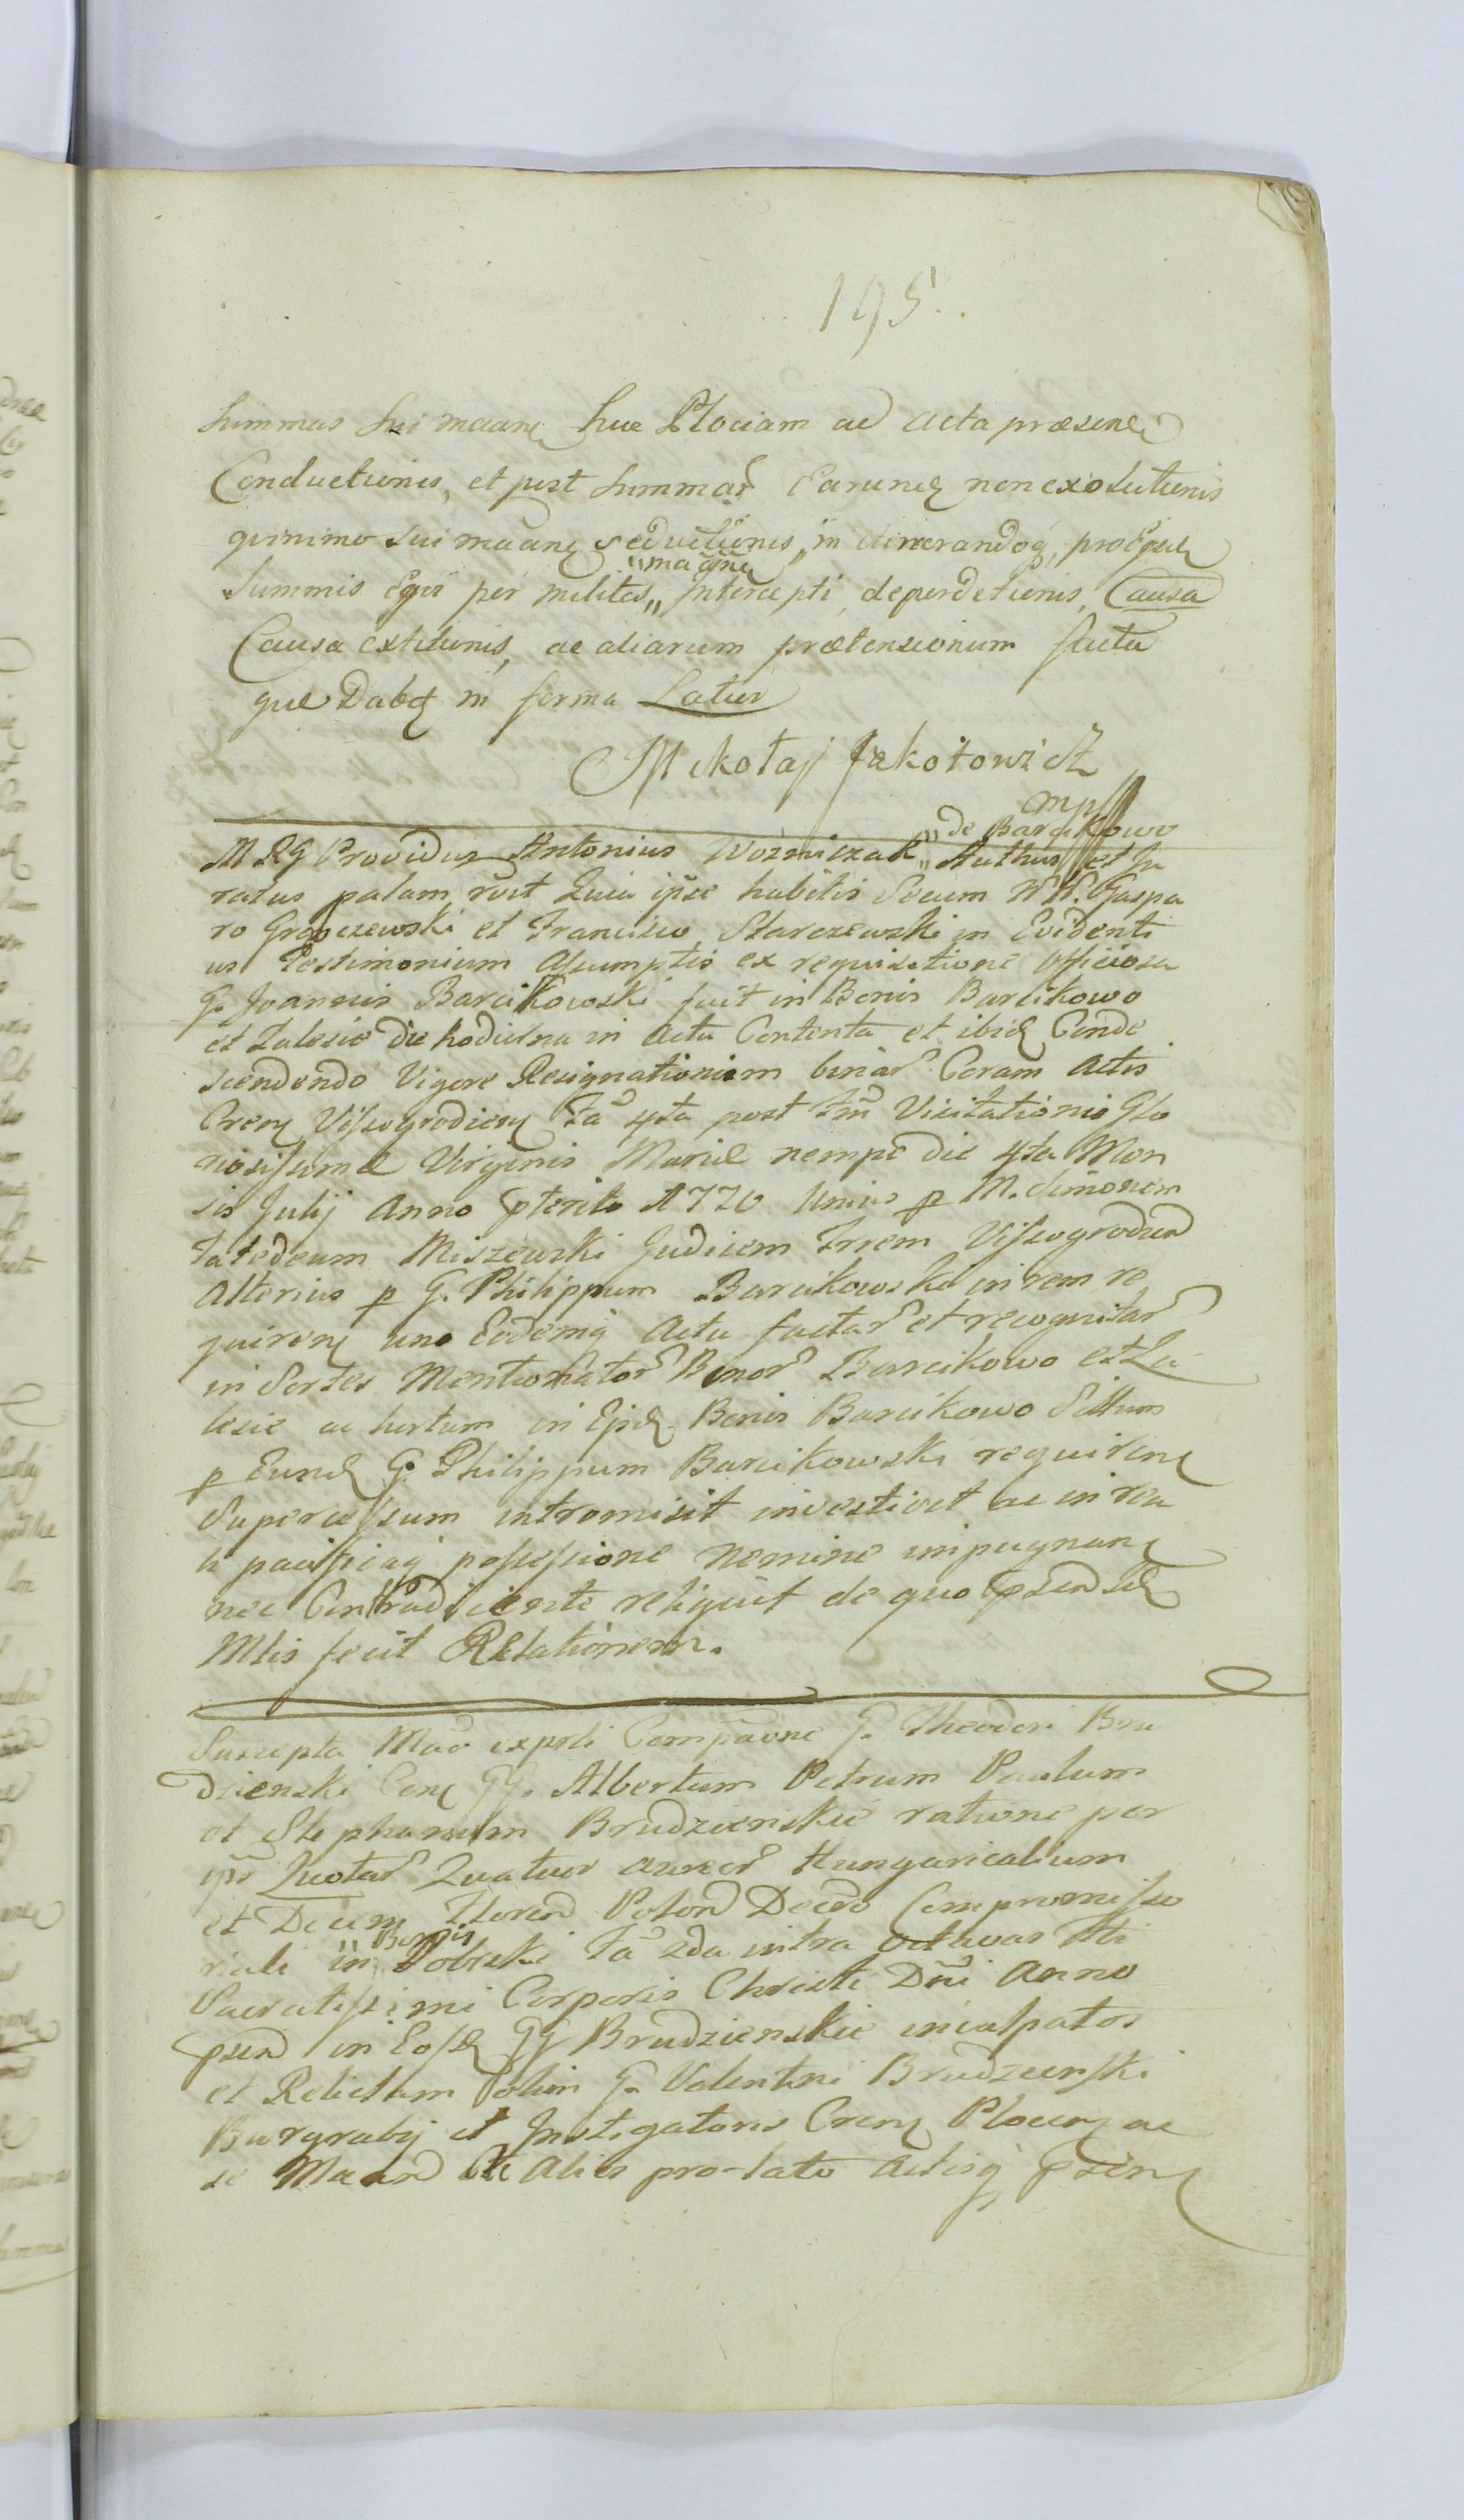 195.
summas sui maane huc Plociam ad Acta præsene
Conductionis, et post summar Earunq non exolutionis
quinimo sui maanq seductionis, in itinerandoq, pro Eque
"maans
Summis Equi per milites,, Intercepti, deperditionis, Causa
Causa extitionis, ac aliarum prætensionum facta
que Dabq in forma Latur
Mikołaj Jakotowicz
mp
"de Barcikowo
M RG Providus Antonius Wozniczak,, Authus et Ju
ratus palam rvit Quia ipse habitis Secum NN. Gaspa
ro Gropczewski et Francisco Starczewski in Evidenti
us Testimonium Assumptis ex requisitione officiosa
G. Joannis Barcikowski fuit in Bonis Barcikowo
et Zalesie die hodierna in Actu Contenta et ibiq Conde
scendendo Vigore Resignationiom binar Coram Actis
Cren Vissogrodien Fa 4ta post Fm Visitationis Glo
riosissimæ Virginis Mariæ nempe die 4ta Men
sis Julij Anno pterito 1770 Unius p M. Simonem
Tatedeum Miszewski Judicem Trrem Vissogroden
Alterius p G. Philippum Barcikowski in rem re
quiren uno Eodemq Actu factar et recognitar
in Sortes Mentionator Bonor Barcikowo et Za
lesie ac hortum in Ejsd Bonis Barcikowo Sittum
p Eund G. Philippum Barcikowski requiren
Supercessum intromisit investivit ac in rea
li pacificaq possessione Nemine impugnan
nec Contradicente reliquit de quo psen
Mlis fecit Relationem.
Suscepta Mao expsti Compaone G. Theodori Bru
dzienski Con GG. Albertum Petrum Paulum
et Stephanum Brudzienskie ratione per
ips Quotar Quatuor aureor Hungaricalium
et Decem Floren Polon Decro Compromisso
"Bonis
riali in,, Dobrski Fa 2da intra octavas Fti
Sacratissimi Corporis Christi Dni Anno
psen in Eosd GG Brudzienskie inculpatos
et Relictam olim G. Valentini Brudzienski
Burgrabij et Instigatoris Cren Plocen ac
se Maan et Alios pro-lato Actisq psen